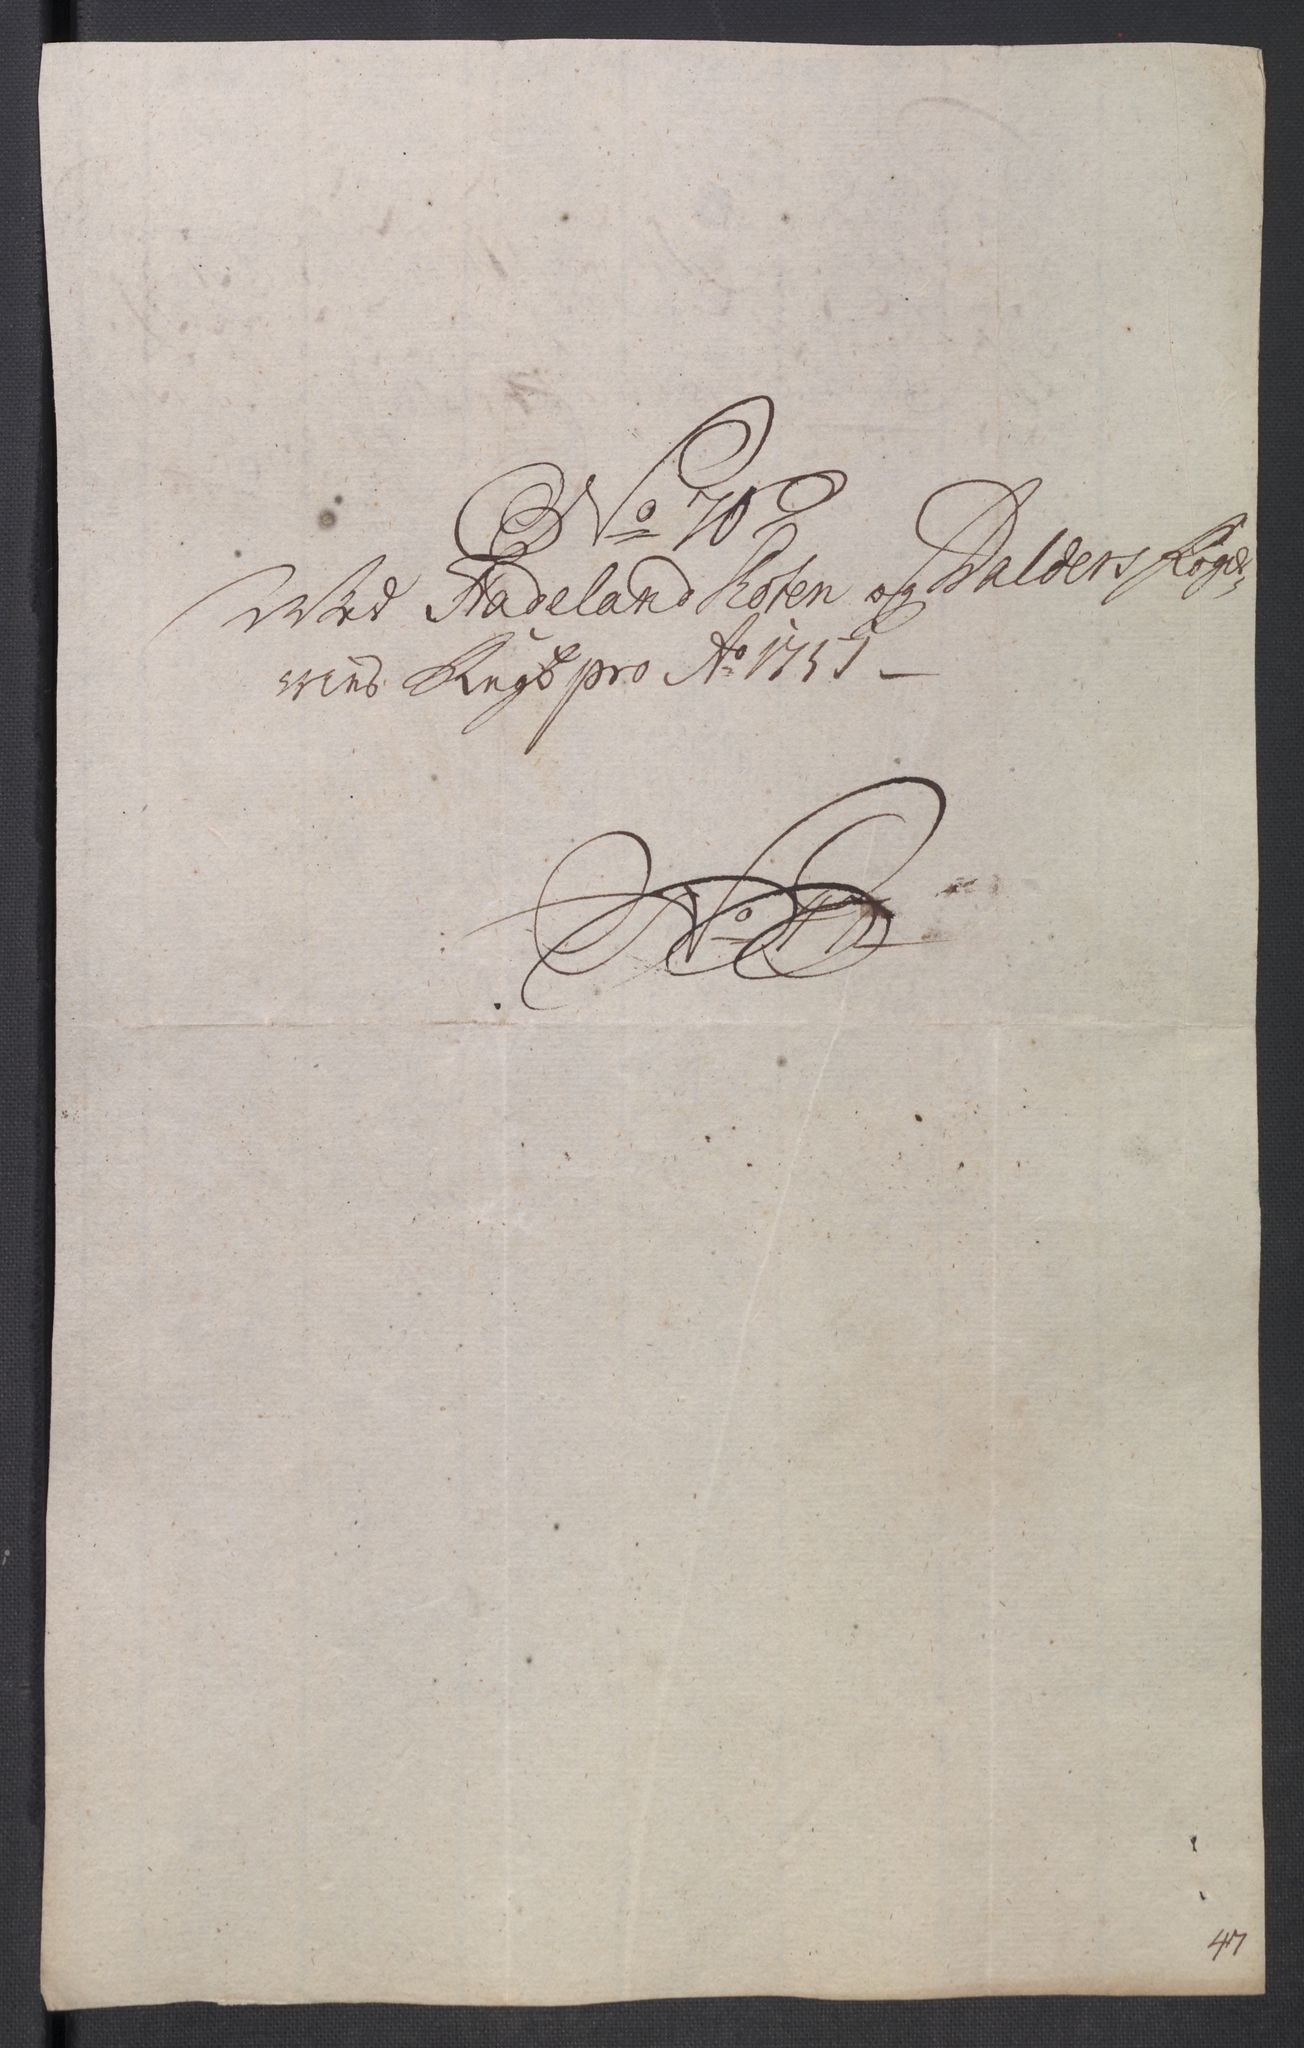 No 70
Ved Hadeland Toten og Valders Foge-
ries Regsb pro Ao 1751
No
47